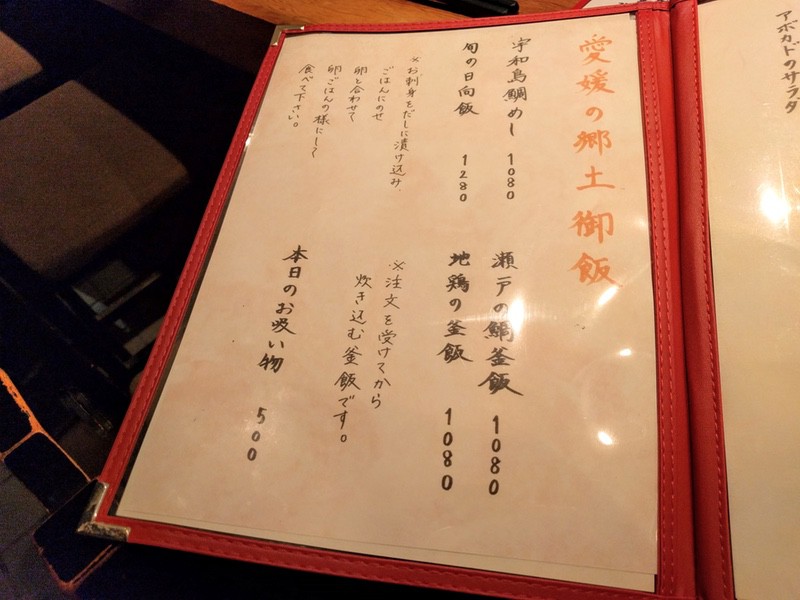 アボカドのサラダ
愛媛の郷土御飯
宇和島鯛めし 1080
旬の日向飯 1280
※お刺身をだしに漬け込み、
ごはんにのせ
卵と合わせて
卵ごはんの様にして
食べて下さい。
瀬戸の鯛釜飯 1080
地鶏の釜飯 1080
※注文を受けてから
炊き込む釜飯です。
本日のお吸い物 500